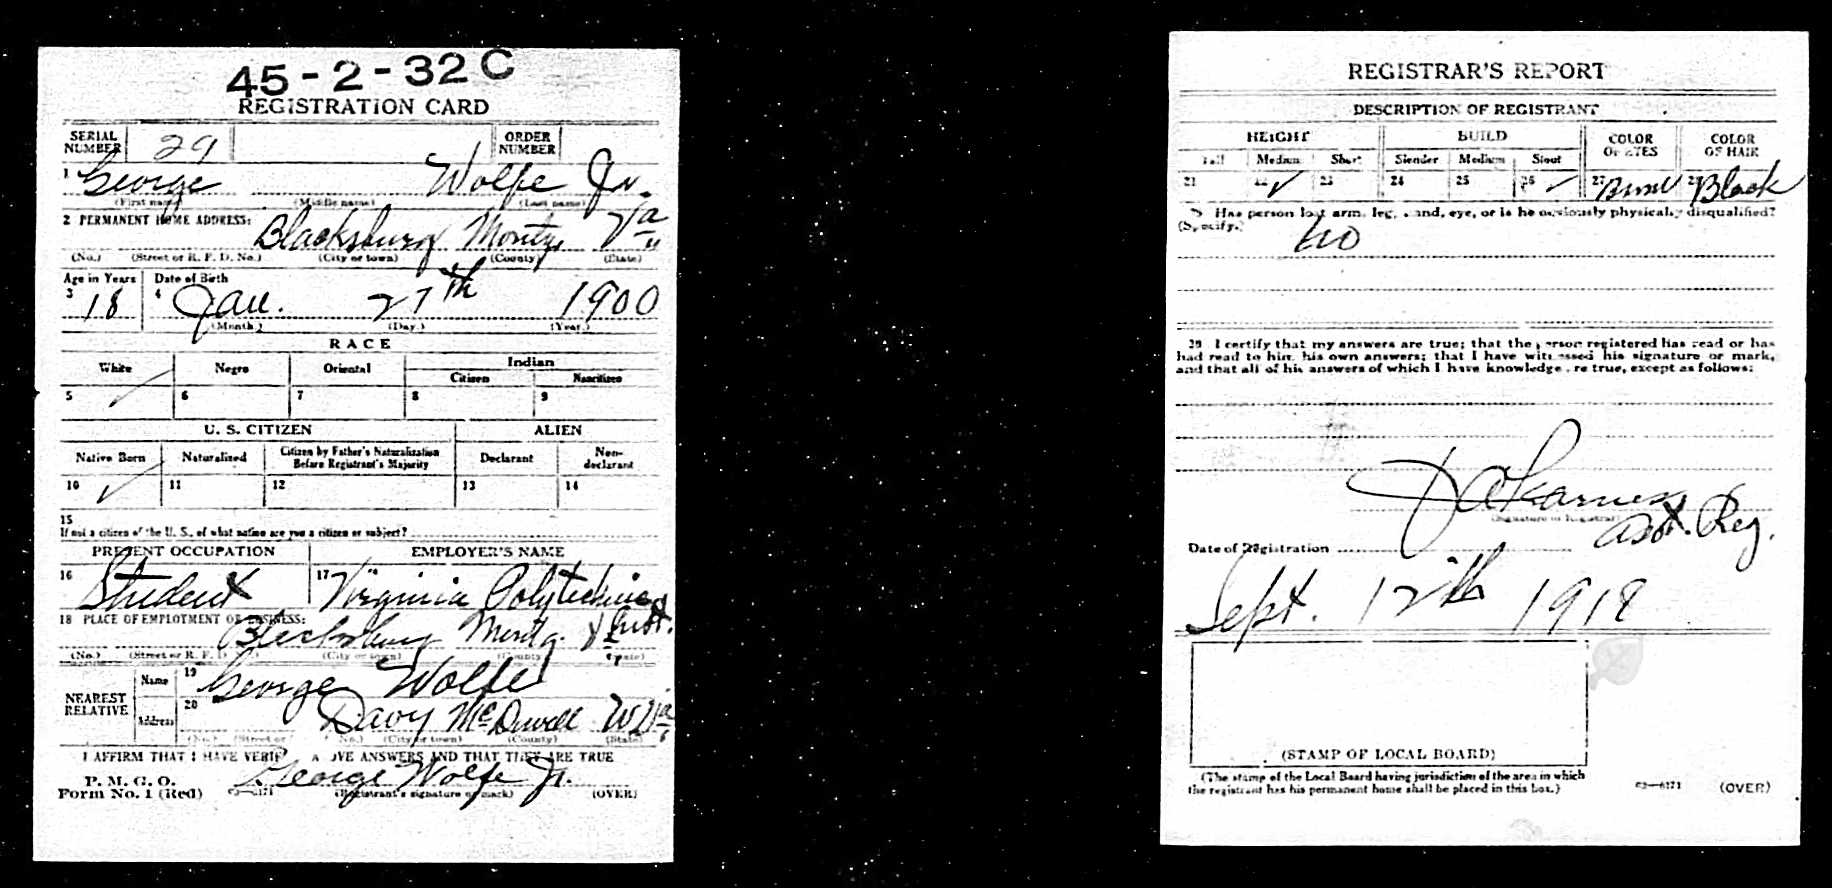 45-2-32 C
REGISTRATION CARD
SERIAL NUMBER 29 ORDER NUMBER
1 George Wolfe Jr.
(First name) (Middle name) (Last name)
2 PERMANENT HOME ADDRESS:
Blacksburg Montg. Va
(No.) (Street or R. F. D. No.) (City or town) (County) (State)
Age in Years Date of Birth
3 18 4 Jan. 27th 1900
(Month.) (Day.) (Year.)
RACE
White Negro Oriental Indian
Citizen Noncitizen
5 ✓ 6 7 8 9
U. S. CITIZEN ALIEN
Native Born Naturalized Citizen by Father's Naturalization Before Registrant's Majority Declarant Non-declarant
10 ✓ 11 12 13 14
15
If not a citizen of the U. S., of what nation are you a citizen or subject?
PRESENT OCCUPATION EMPLOYER'S NAME
16 Student 17 Virginia Polytechnic Inst.
18 PLACE OF EMPLOYMENT OR BUSINESS:
Blacksburg Montg. Va
(No.) (Street or R. F. D. No.) (City or town) (County) (State)
NEAREST RELATIVE Name 19 George Wolfe
Address 20 Davy McDowell W Va
(No.) (Street or R. F. D. No.) (City or town) (County) (State)
I AFFIRM THAT I HAVE VERIFIED ABOVE ANSWERS AND THAT THEY ARE TRUE
P. M. G. O.
Form No. 1 (Red) 03—6171 George Wolfe Jr.
(Registrant's signature or mark) (OVER)
REGISTRAR'S REPORT
DESCRIPTION OF REGISTRANT
HEIGHT BUILD COLOR OF EYES COLOR OF HAIR
Tall Medium Short Slender Medium Stout
21 22 ✓ 23 24 25 26 ✓ 27 Blue 28 Black
29 Has person lost arm, leg, hand, eye, or is he obviously physically disqualified?
(Specify.) no
30 I certify that my answers are true; that the person registered has read or has
had read to him his own answers; that I have witnessed his signature or mark,
and that all of his answers of which I have knowledge are true, except as follows:
(Signature of Registrar)
Asst. Reg.
Date of Registration
Sept. 12th 1918
(STAMP OF LOCAL BOARD)
(The stamp of the Local Board having jurisdiction of the area in which
the registrant has his permanent home shall be placed in this box.)
03—6171 (OVER)